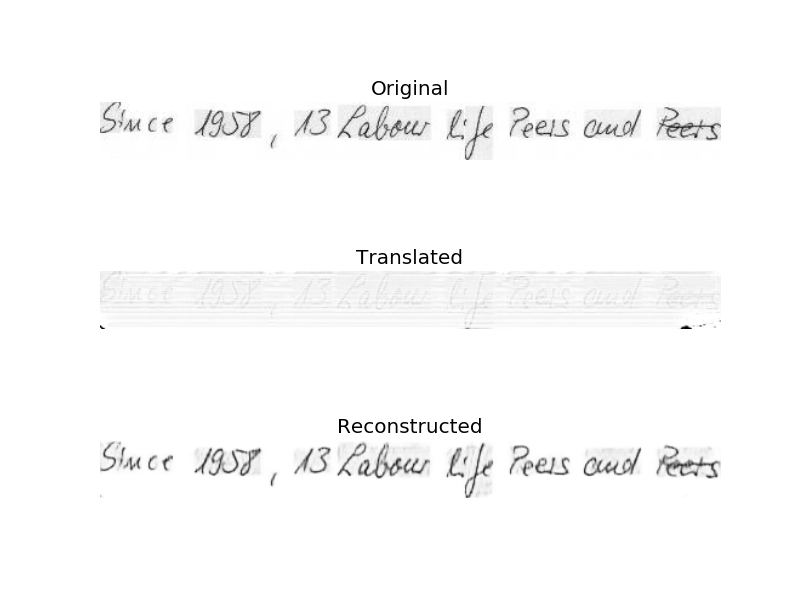 Original
Since 1958, 13 Labour life Peers and Peers
Translated
Since 1958, 13 Labour life Peers and Peers
Reconstructed
Since 1958, 13 Labour life Peers and Peers